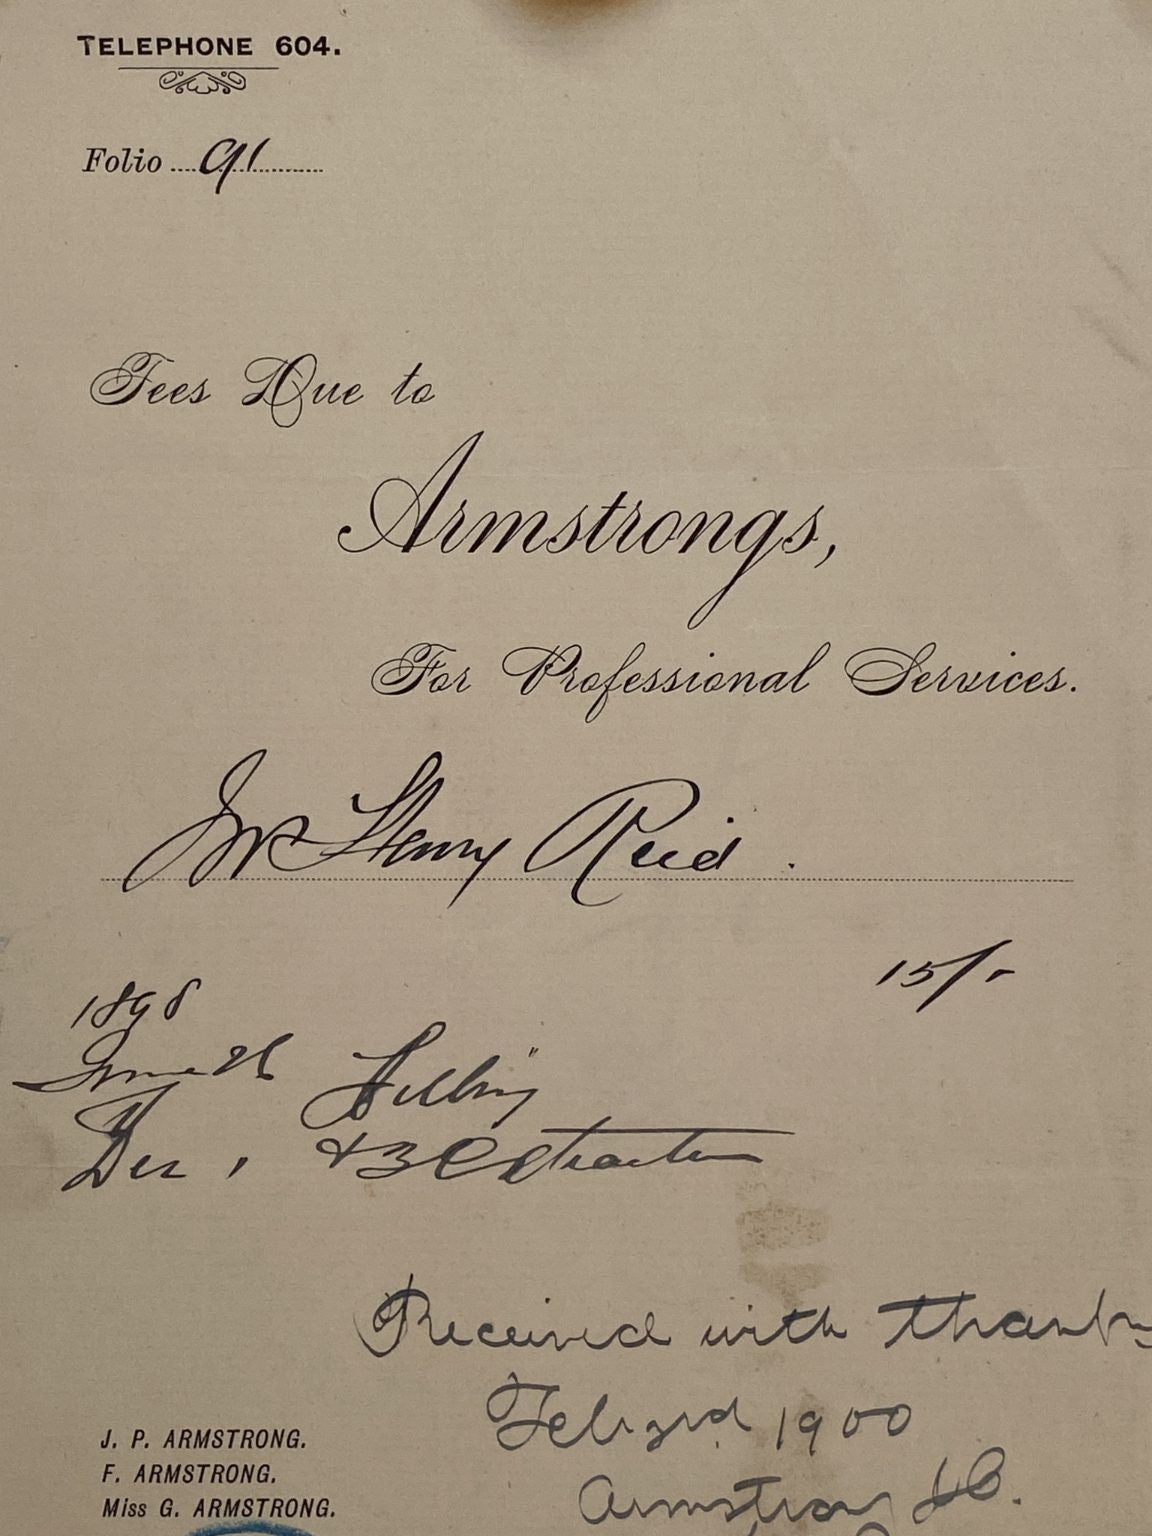 TELEPHONE 604.
Folio 91
Fees Due to
Armstrongs,
For Professional Services.
Mr Henry Reid.
15/-
1898
Filling
Dec, & 3 Extractions
Received with thanks
Feb 3rd 1900
Armstrong
J. P. ARMSTRONG.
F. ARMSTRONG.
Miss G. ARMSTRONG.